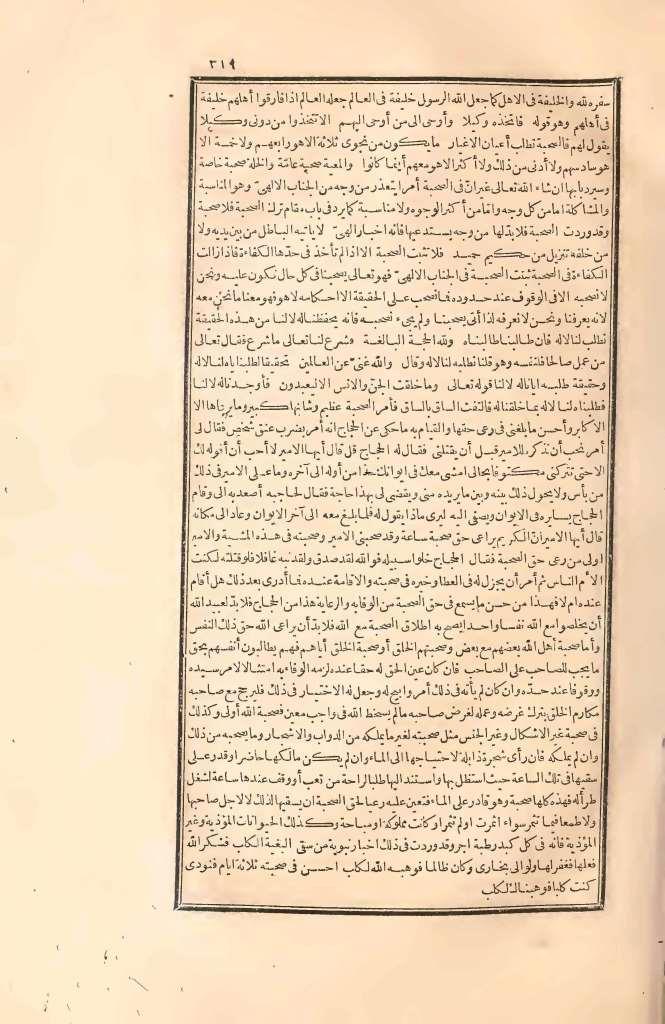 ٣١٩
سفره لله والخليفة في الاهل كما جعل الله الرسول خليفة في العالم جعله العالم اذا فارقوا أهلهم خليفة
في أهلهم وهو قوله فاتخذه وكيلا وأوحى الى من أوحى اليهم الا تتخذوا من دوني وكيلا
يقول لهم فالصحبة تطلب أعيان الاغيار ما يكون من نجوى ثلاثة الا هو رابعهم ولا خمسة الا
هو سادسهم ولا أدنى من ذلك ولا أكثر الا هو معهم أينما كانوا والمعية صحبة عامّة والخلة صحبة خاصة
وسيرد بابها ان شاء الله تعالى غير انّ في الصحبة أمرا يتعذر من وجه من الجناب الالهيّ وهو المناسبة
والمشاكلة امّا من كل وجه وامّا من أكثر الوجوه ولا مناسبة كما يرد في باب مقام ترك الصحبة فلا صحبة
وقد وردت الصحبة فلا بدّ لها من وجه يستدعيها فانه اخبار الهيّ لا يأتيه الباطل من بين يديه ولا
من خلفه تنزيل من حكيم حميد فلا تثبت الصحبة الا اذا لم تأخذ في حدّها الكفاءة فاذا زالت
الكفاءة في الصحبة ثبتت الصحبة في الجناب الالهيّ فهو تعالى يصحبنا في كل حال نكون عليه ونحن
لا نصحبه الا في الوقوف عند حدوده فما نصحب على الحقيقة الا احكامه لا هو فهو معنا ما نحن معه
لانه يعرفنا ونحن لا نعرفه لذا أتى يصحبنا ولم يجئ نصحبه فانه يحفظنا له لا لنا من هذه الحقيقة
نطلب لنا لا له فان طالبنا طالبناه ولله الحجة البالغة وشرع لنا تعالى ما شرع فقال تعالى
من عمل صالحا فلنفسه وهو قلنا نطلبه لنا لا له وقال والله غنيّ عن العالمين تحقيقا لطلبنا اياه لنا لا له
وحقيقة طلبه ايانا له لا لنا قوله تعالى وما خلقت الجنّ والانس الا ليعبدون فأوجدنا له لا لنا
فطلبناه لنا لا له بما خلقنا له فالتفت الساق بالساق فأمر الصحبة عظيم وشانها كبير وما يرعاها الا
الاكابر وأحسن ما بلغني في رعى حقها والقيام به ما حكى عن الحجاج انه أمر بضرب عنق شخص فقال لي
أمر يجب أن نذكره للامير قبل أن يقتلني فقال له الحجاج قل قال أيها الامير لا أحب أن أقوله لك
الا حتى تتركني مكتوفا بحالي امشي معك في ايوانك هذا من أوله الى آخره وما على الامير في ذلك
من بأس ولا يحول ذلك بينه وبين ما يريده مني ويقضى لي بهذا حاجة فقال لحاجبه أصعد به الي وقام
الحجاج يسايره في الايوان ويصغى اليه ليرى ماذا يقول له فلما بلغ معه الى آخر الايوان وعاد الى مكانه
قال أيها الامير انّ الكريم يراعى حق صحبة ساعة وقد صحبني الامير وصحبته في هذه المشية والامير
اولى من رعى حق الصحبة فقال الحجاج خلوا سبيله فو الله لقد صدق ولقد نبه غافلا فلو قتلته لكنت
الأم الناس ثم أمر أن يجزل له في العطا وخيره في صحبته والاقامة عنده فما أدرى بعد ذلك هل أقام
عنده ام لا فهذا من حسن ما يسمع في حق الصحبة من الوقاية والرعاية هذا من الحجاج فلا بدّ لعبيد الله
أن يخلصوا مع الله نفسا واحدا يصح به اطلاق الصحبة مع الله فلا بدّ أن يراعى الله حق ذلك النفس
وأما صحبة أهل الله بعضهم مع بعض وصحبتهم الخلق أو صحبة الخلق أياهم فهم يطالبون أنفسهم بحق
ما يجب للصاحب على الصاحب فان كان عين الحق له حقا عنده لزمه الوفاء به امتثالا لامر سيده
ووقوفا عند حدّه وان كان لم يأته في ذلك أمر وابيح له وجعل له الاختيار في ذلك فليرجح مع صاحبه
مكارم الخلق بترك غرضه وعمله لغرض صاحبه ما لم يسخط الله في واجب معين فصحبة الله أولى وكذلك
في صحبة غير الاشكال وغير الجنس مثل صحبته لغير ما يملكه من الدواب والاشجار وما يصحبه من ذلك
وان لم يملكه فان رأى شجرة ذابلة لاحتياجها الى الماء وان لم يكن مالكها حاضرا وقدر على
سقيها في تلك الساعة حيث استظل بها واستند اليها طلبا لراحة من تعب أو وقف عندها ساعة لشغل
طرأ له فهذه كلها صحبة وهو قادر على الماء فتعين عليه رعيا لحق الصحبة ان يسقيها لذلك لا لاجل صاحبها
ولا طمعا فيما تثمر سواء أثمرت او لم تثمر او كانت مملوكة او مباحة وكذلك الحيوانات المؤذية وغير
المؤذية فانه في كل كبد رطبة اجر وقد وردت في ذلك اخبار نبوية من سقى البغية الكلب فشكر الله
فعلها فغفر لها ولوالى بخارى وكان ظالما فوهبه الله لكلب احسن في صحبته ثلاثة ايام فنودى
كنت كلبا فوهبناك لكلب